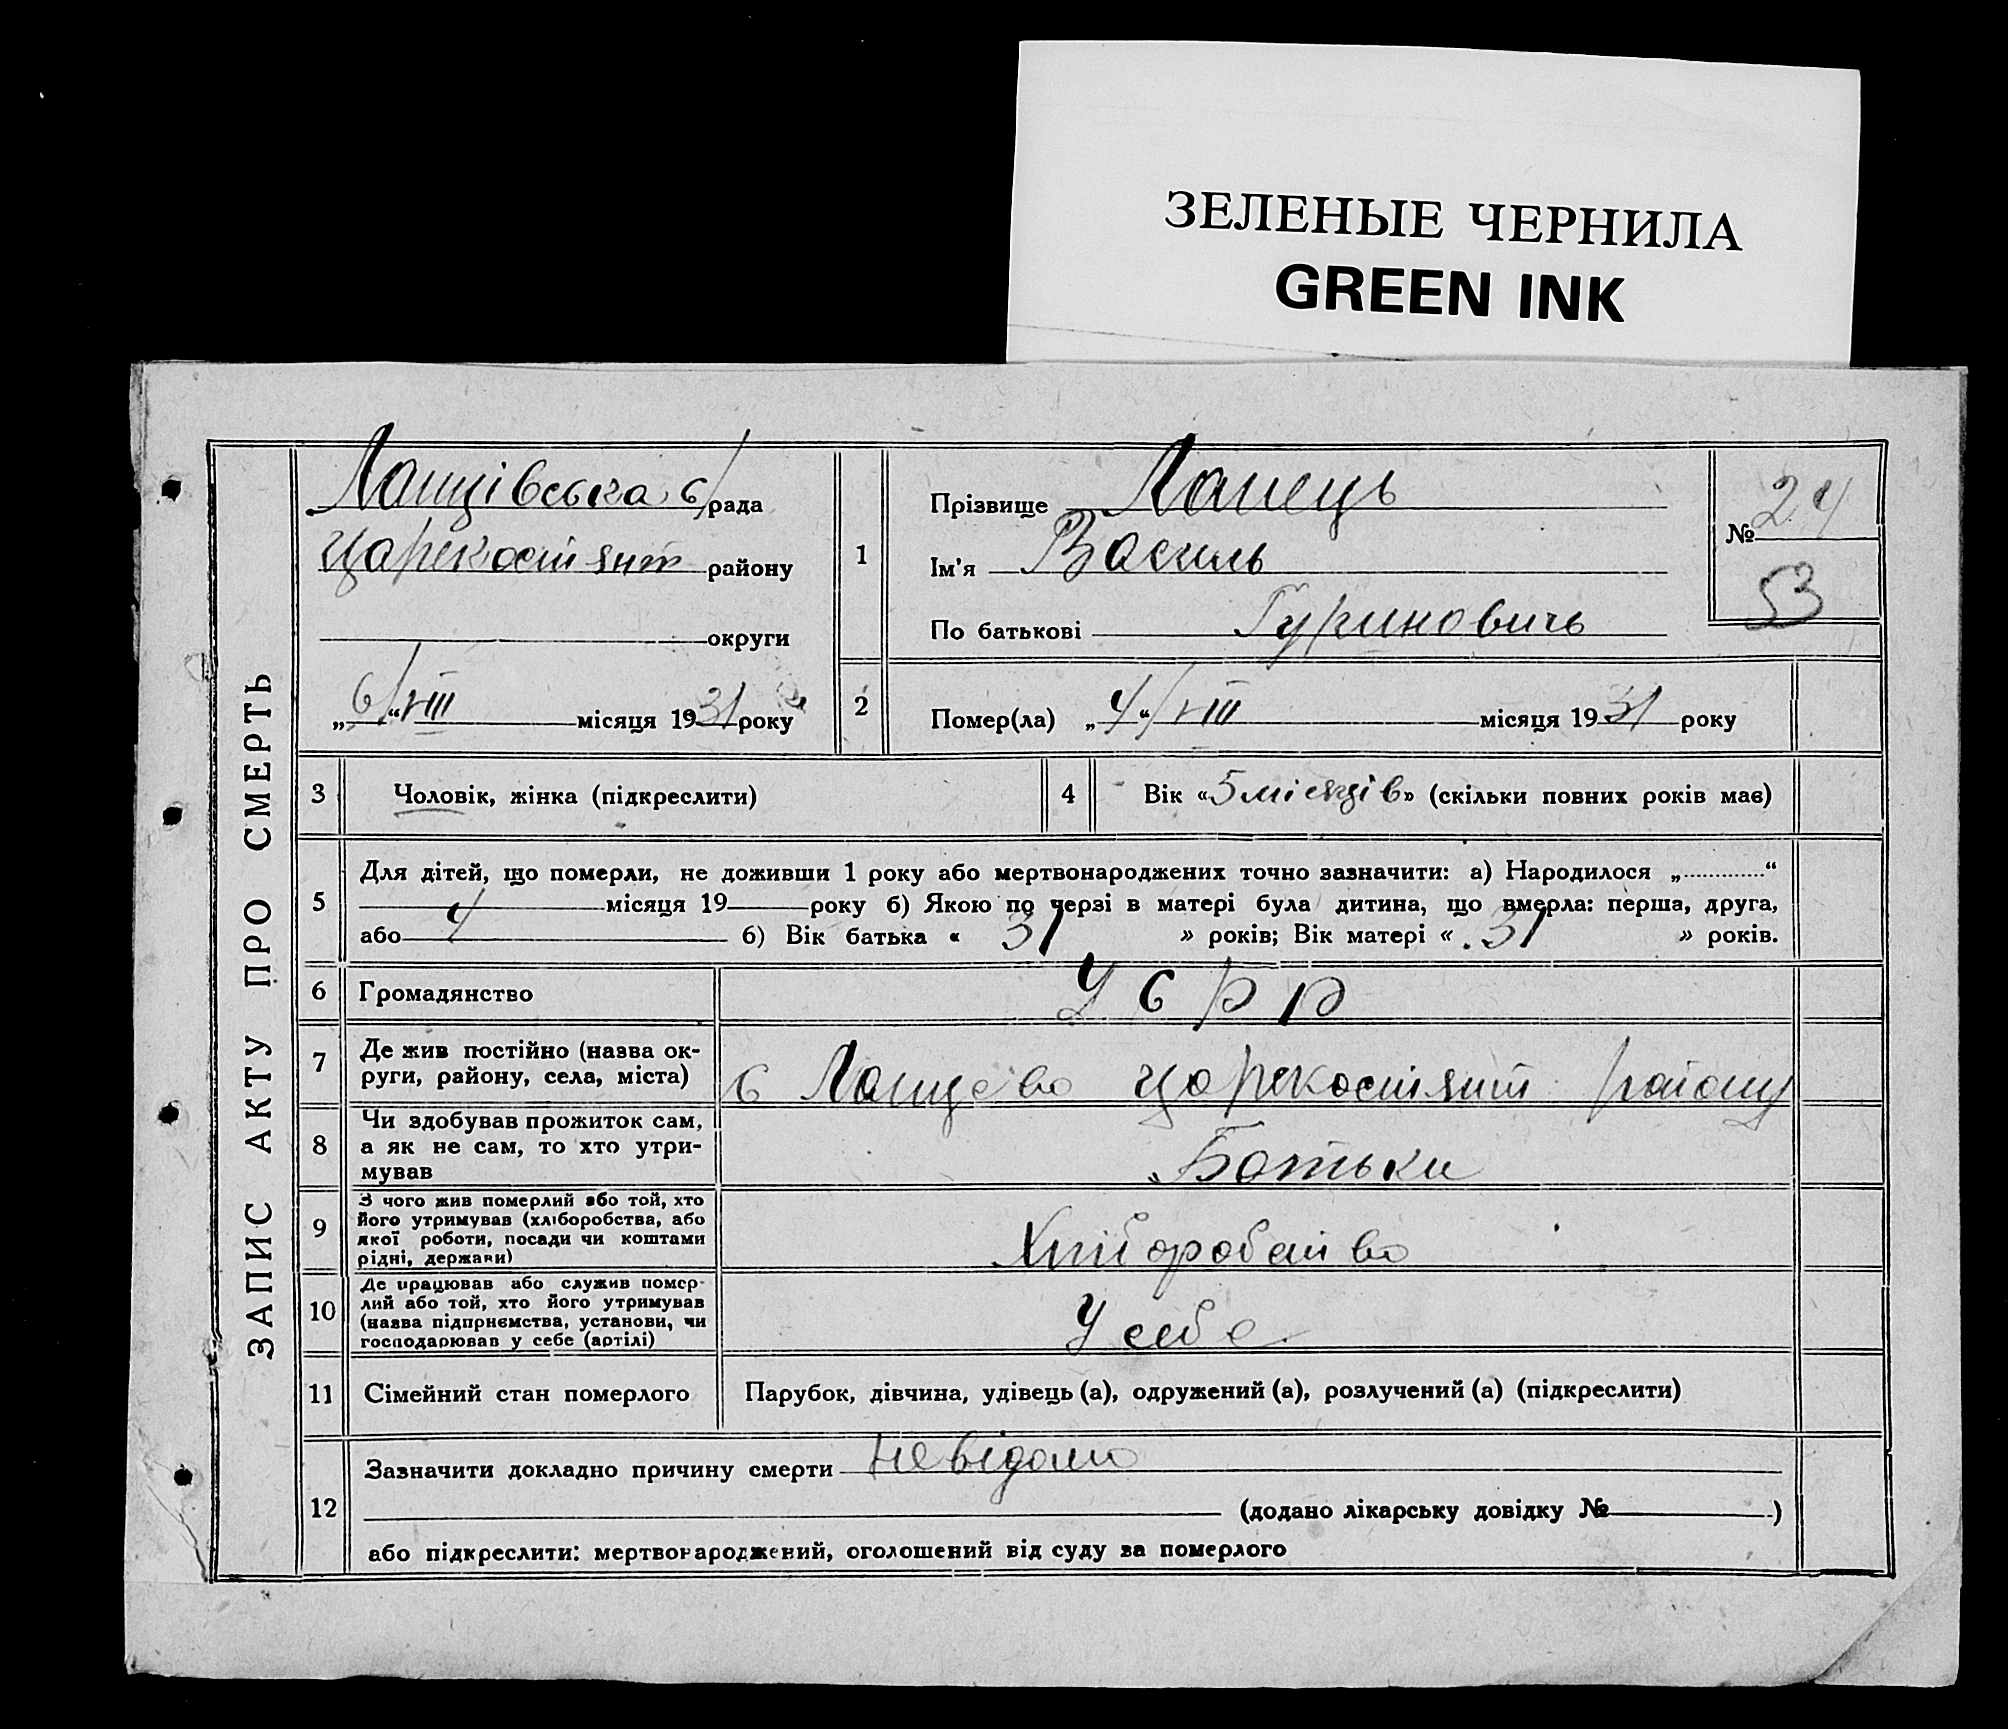 ЗЕЛЕНЫЕ ЧЕРНИЛА
GREEN INK
ЗАПИС АКТУ ПРО СМЕРТЬ
Лащівська с/рада
Царекостянт району
округи
„6/“ VIII місяця 1931 року
1
Прізвище Лапець
Ім'я Василь
По батькові Гуриновичь
№ 24
53
2
Помер(ла) „4/“ VIII місяця 1931 року
3
Чоловік, жінка (підкреслити)
4
Вік «5 місяців» (скільки повних років має)
5
Для дітей, що померли, не доживши 1 року або мертвонароджених точно зазначити: а) Народилося „ “
місяця 19 року б) Якою по черзі в матері була дитина, що вмерла: перша, друга,
або 4 б) Вік батька « 31 » років; Вік матері « 31 » років.
6
Громадянство
У С Р Р
7
Де жив постійно (назва ок-
руги, району, села, міста)
с Лащево Царекостянт району
8
Чи здобував прожиток сам,
а як не сам, то хто утри-
мував
Батьки
9
З чого жив померлий або той, хто
його утримував (хліборобства, або
якої роботи, посади чи коштами
рідні, держави)
Хліборобство
10
Де працював або служив помер-
лий або той, хто його утримував
(назва підприємства, установи, чи
господарював у себе (артілі)
У себе
11
Сімейний стан померлого
Парубок, дівчина, удівець (а), одружений (а), розлучений (а) (підкреслити)
12
Зазначити докладно причину смерти невідомо
(додано лікарську довідку № )
або підкреслити: мертвонароджений, оголошений від суду за померлого